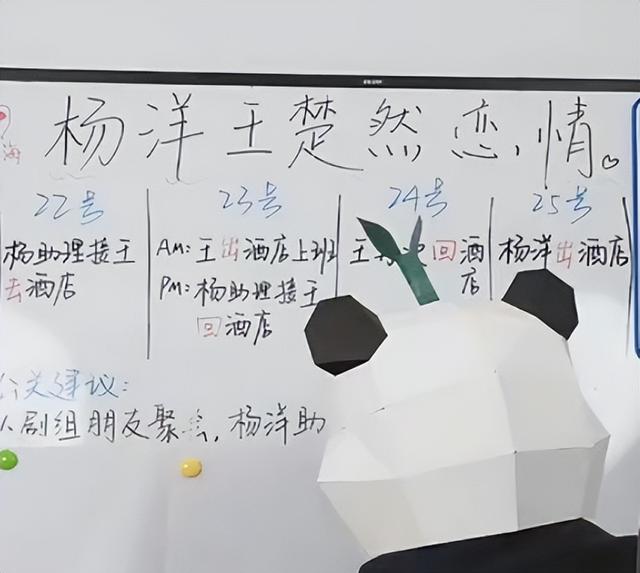 杨洋王楚然恋情。
海
22号
杨助理接王
去酒店
23号
AM:王出酒店上班
PM:杨助理接王
回酒店
24号
王 回酒
店
25号
杨洋出酒店
关建议:
剧组朋友聚 ,杨洋助